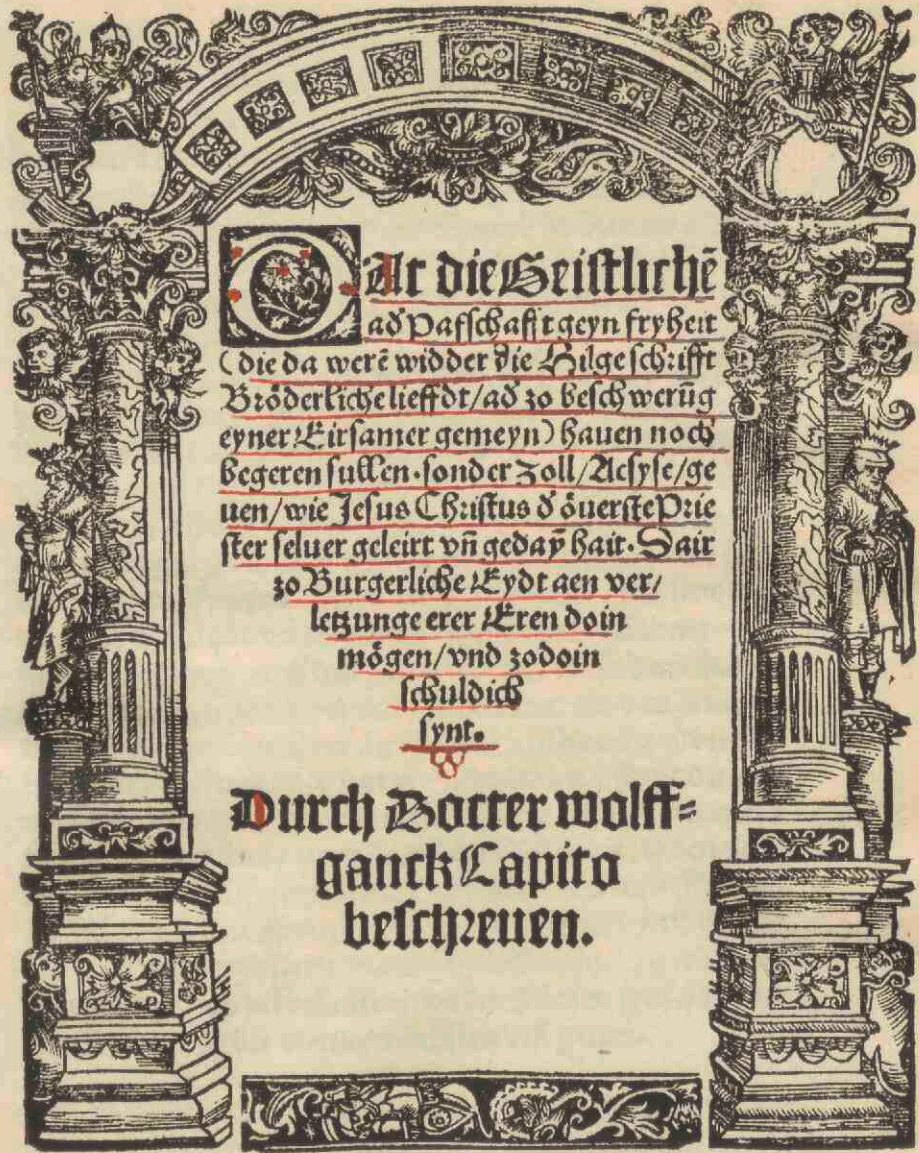 DAt die Geistlichē
ad̄ Pafschafft geyn fryheit
(die da werē widder die Hilge schrifft
Bröderliche lieffdt/ad̄ zo beschwerūg
eyner Eirsamer gemeyn) hauen noch
begeren sullen. sonder Zoll/Acsyse/ge
uen/wie Jesus Christus d̄ öuerste Prie
ster seluer geleirt vn̄ gedaȳ hait. Dair
zo Burgerliche Eydt aen ver/
letzunge erer Eren doin
mögen/vnd zodoin
schuldich
synt.
Durch Docter wolff=
ganck Capito
beschreuen.